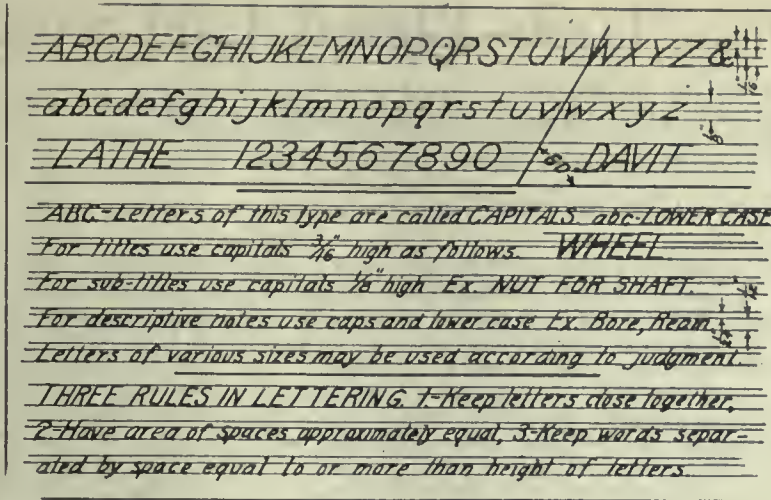 ABCDEFGHIJKLMNOPQRSTUVWXYZ &
abcdefghijklmnopqrstuvwxyz
LATHE 1234567890 60° DAVIT
ABC-Letters of this type are called CAPITALS. abc-LOWER CASE
For titles use capitals 3/16" high as follows. WHEEL
For sub-titles use capitals 1/8" high Ex. NUT FOR SHAFT.
For descriptive notes use caps and lower case Ex. Bore, Ream.
Letters of various sizes may be used according to judgment.
THREE RULES IN LETTERING. 1-Keep letters close together,
2-Have area of spaces approximately equal, 3-Keep words separ-
ated by space equal to or more than height of letters.